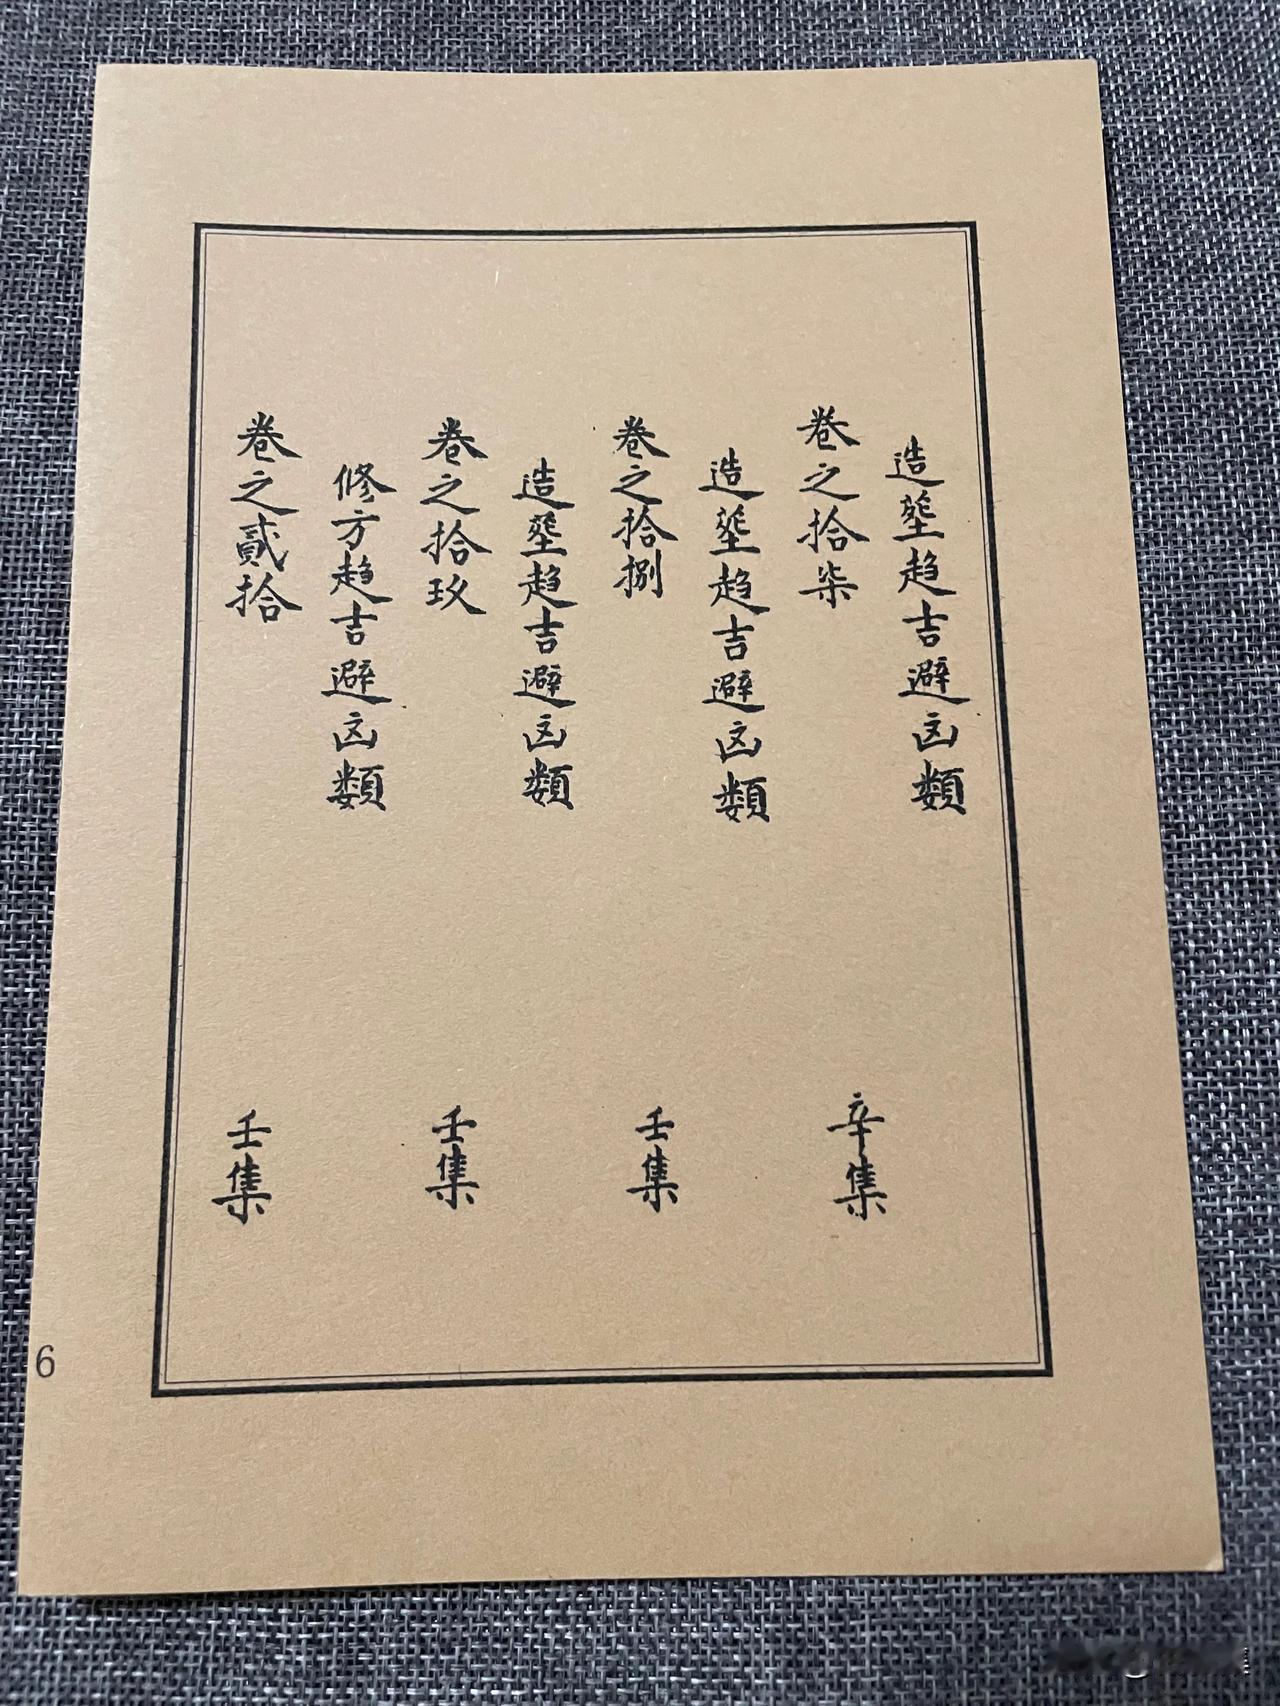 造塟趋吉避凶類
卷之拾柒 辛集
造塟趋吉避凶類
卷之拾捌 壬集
造塟趋吉避凶類
卷之拾玖 壬集
修方趋吉避凶類
卷之貳拾 壬集
6